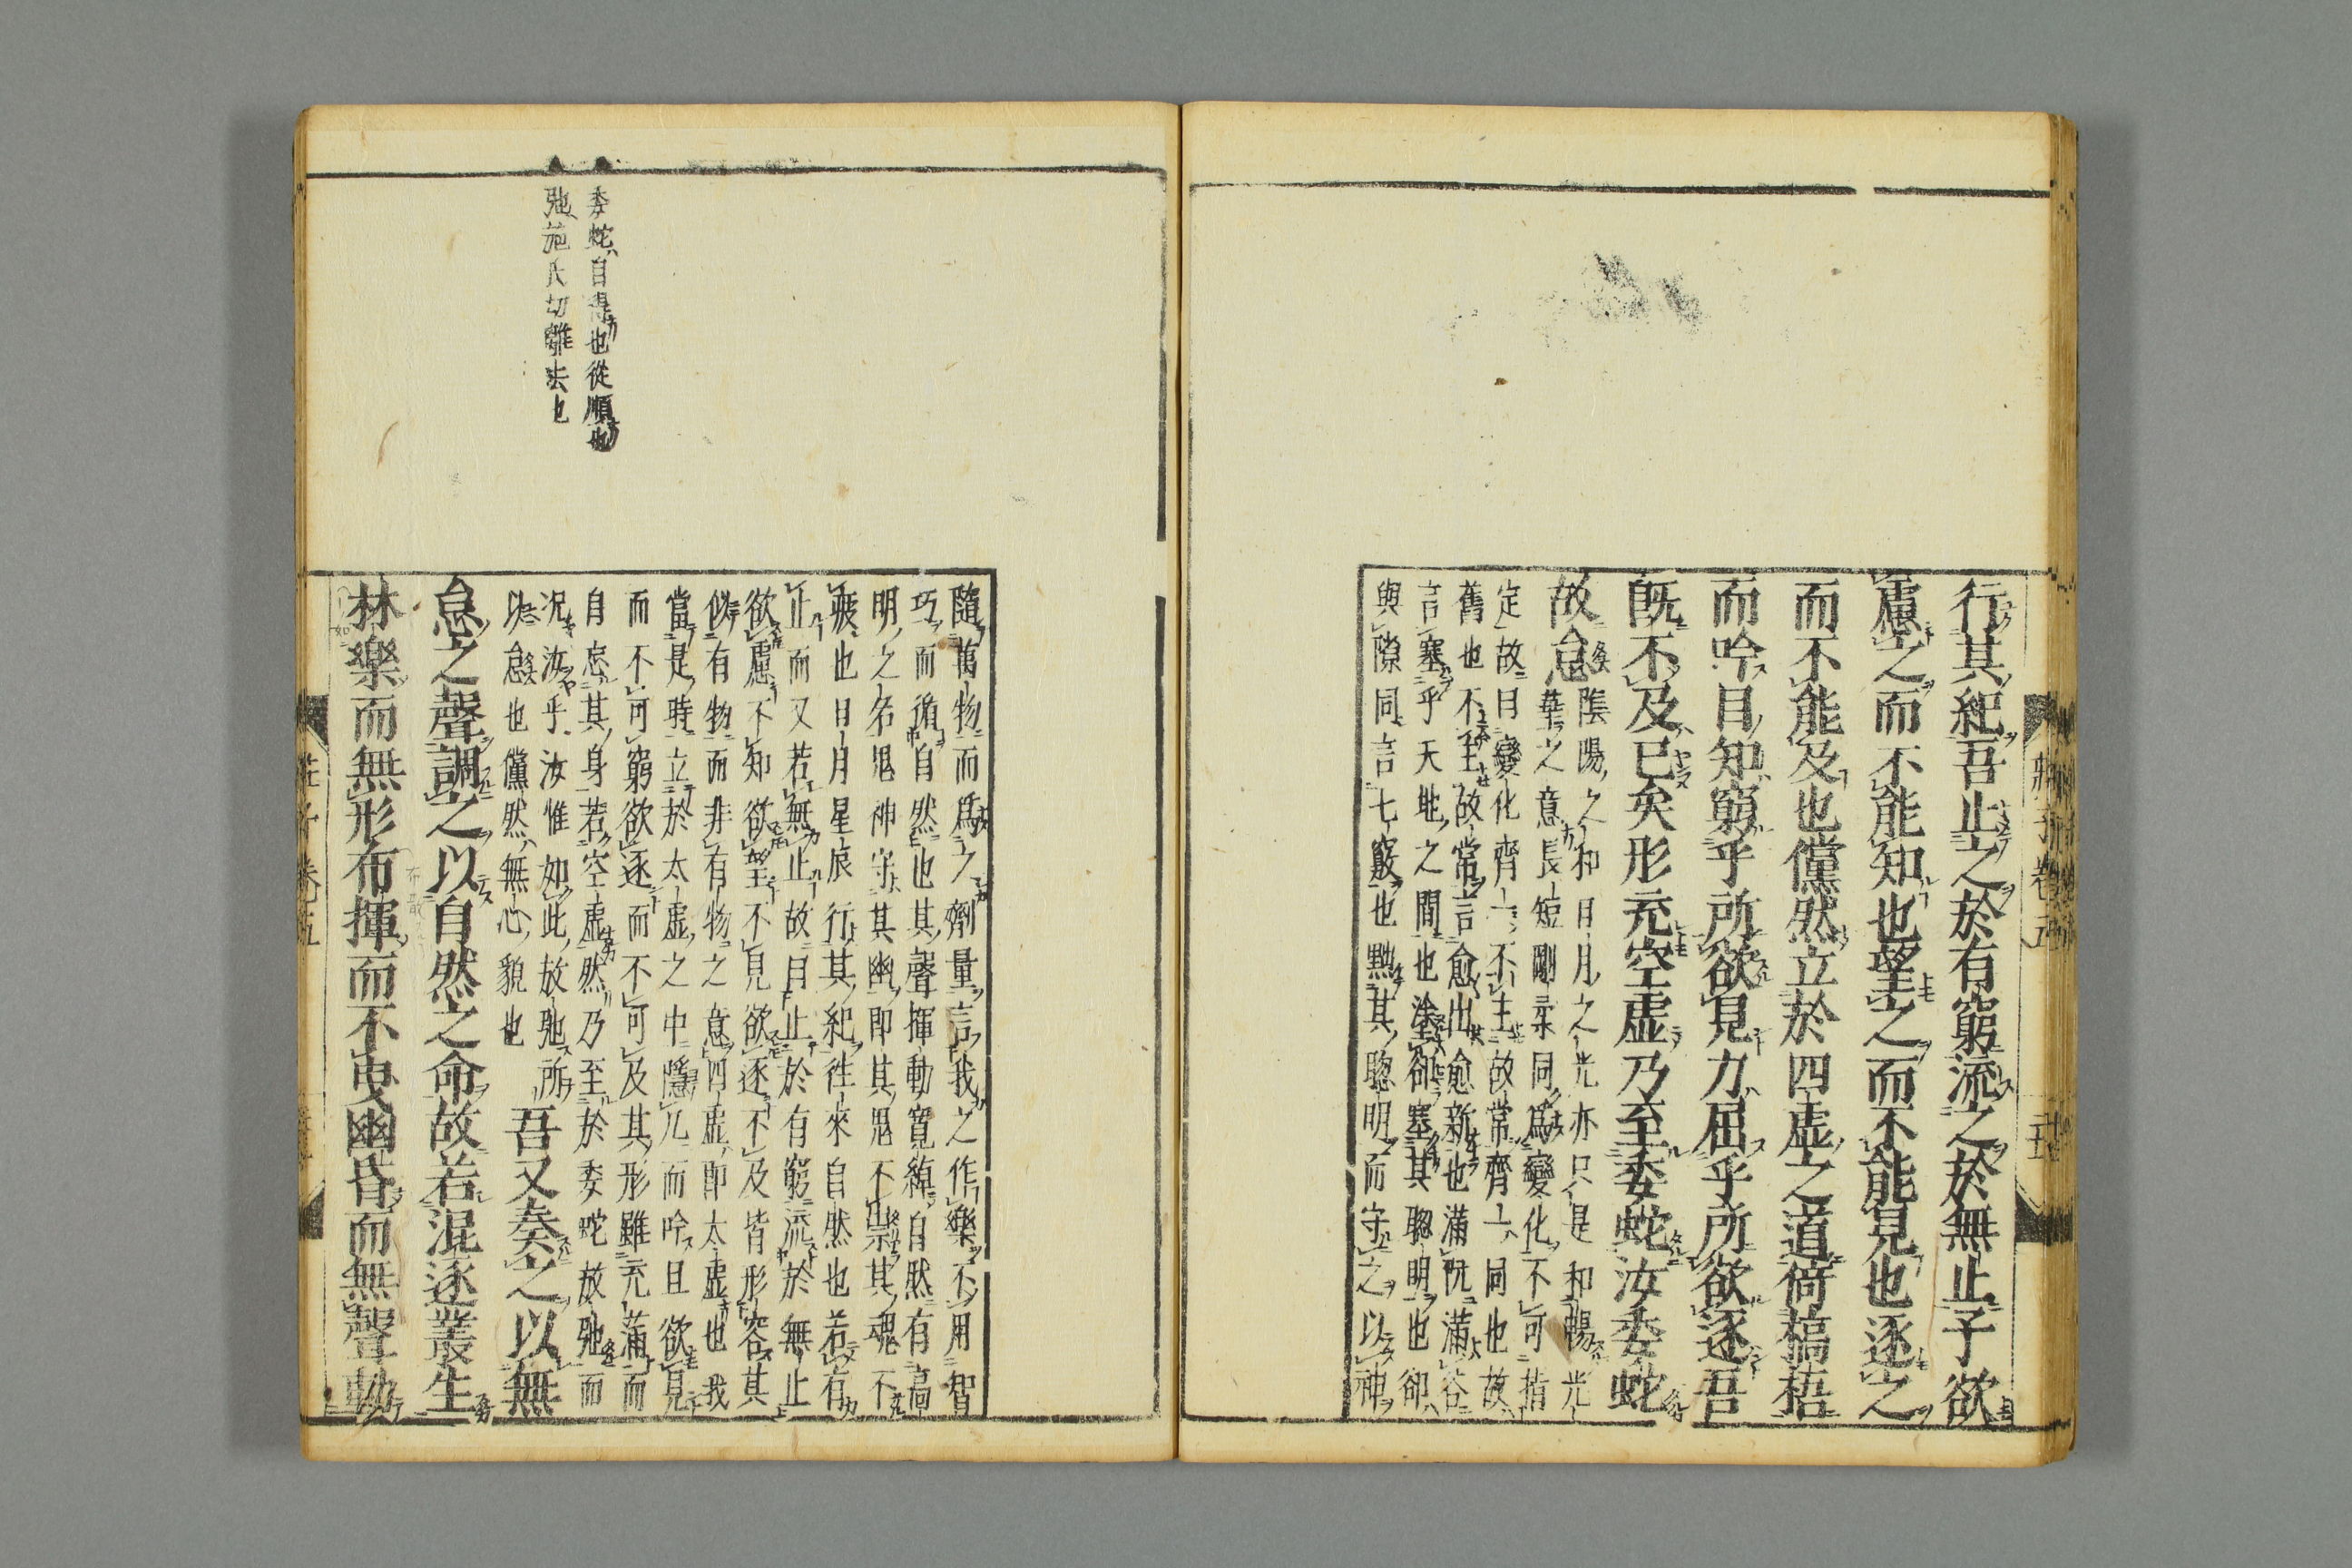 行其紀吾止之於有窮流之於無止子欲
慮之而不能知也望之而不能見也逐之
而不能及也儻然立於四虛之道倚槁梧
而吟目知窮乎所欲見力屈乎所欲逐吾
既不及已矣形充空虛乃至委蛇汝委蛇
故怠
陰陽之和日月之光亦只是和暢光
華之意長短剛柔同為變化不可指
定故曰變化齊一不主故常齊一同也故
舊也不主故常言愈出愈新也滿阬滿谷
言塞乎天地之間也塗卻塞其聰明也卻
與隙同言七竅也黜其聰明而守之以神
隨萬物而為之劑量言我之作樂不用智
巧而循自然也其聲揮動寬綽自然有高
明之名鬼神守其幽即其鬼不崇其魂不
疲也日月星辰行其紀往來自然也若有
止而又若無止故曰止於有窮流於無止
欲慮不知欲望不見欲逐不及皆形容其
似有物而非有物之意四虛即太虛也我
當是時立於太虛之中隱几而吟且欲見
而不可窮欲逐而不可及其形雖充滿而
自忘其身若空虛然乃至於委蛇放弛而
況汝乎汝惟如此放弛所
以怠也儻然無心貌也
吾又奏之以無
怠之聲調之以自然之命故若混逐叢生
林樂而無形布揮而不曳幽昏而無聲動
委蛇自得也從順也
弛施氏切離去也
莊子卷五